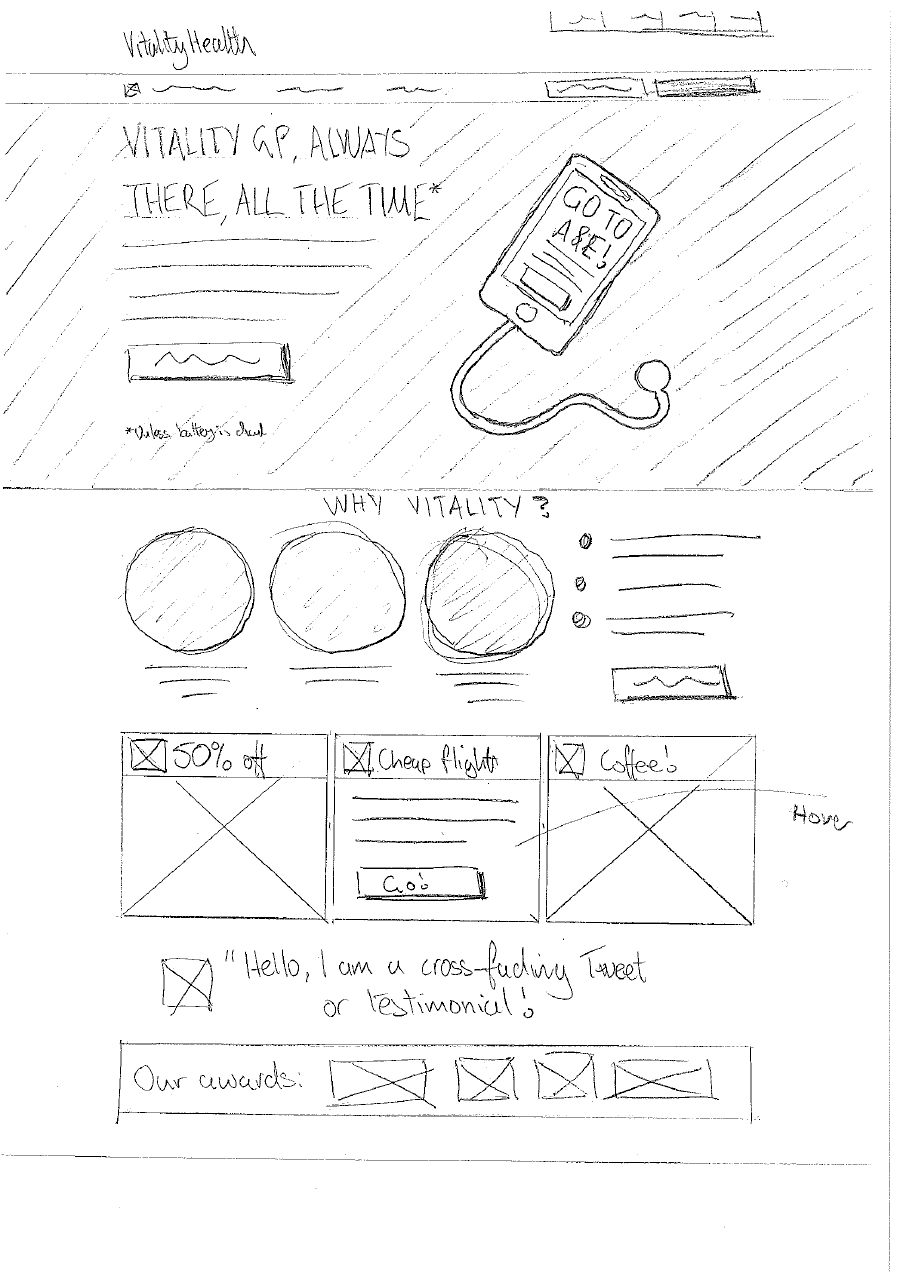 VitalityHealth
VITALITY GP, ALWAYS
THERE, ALL THE TIME*
GO TO
A&E!
*Unless battery is dead
WHY VITALITY?
50% off
Cheap flights
Coffee!
Hover
Go!
"Hello, I am a cross-fading Tweet
or testimonial!
Our awards: